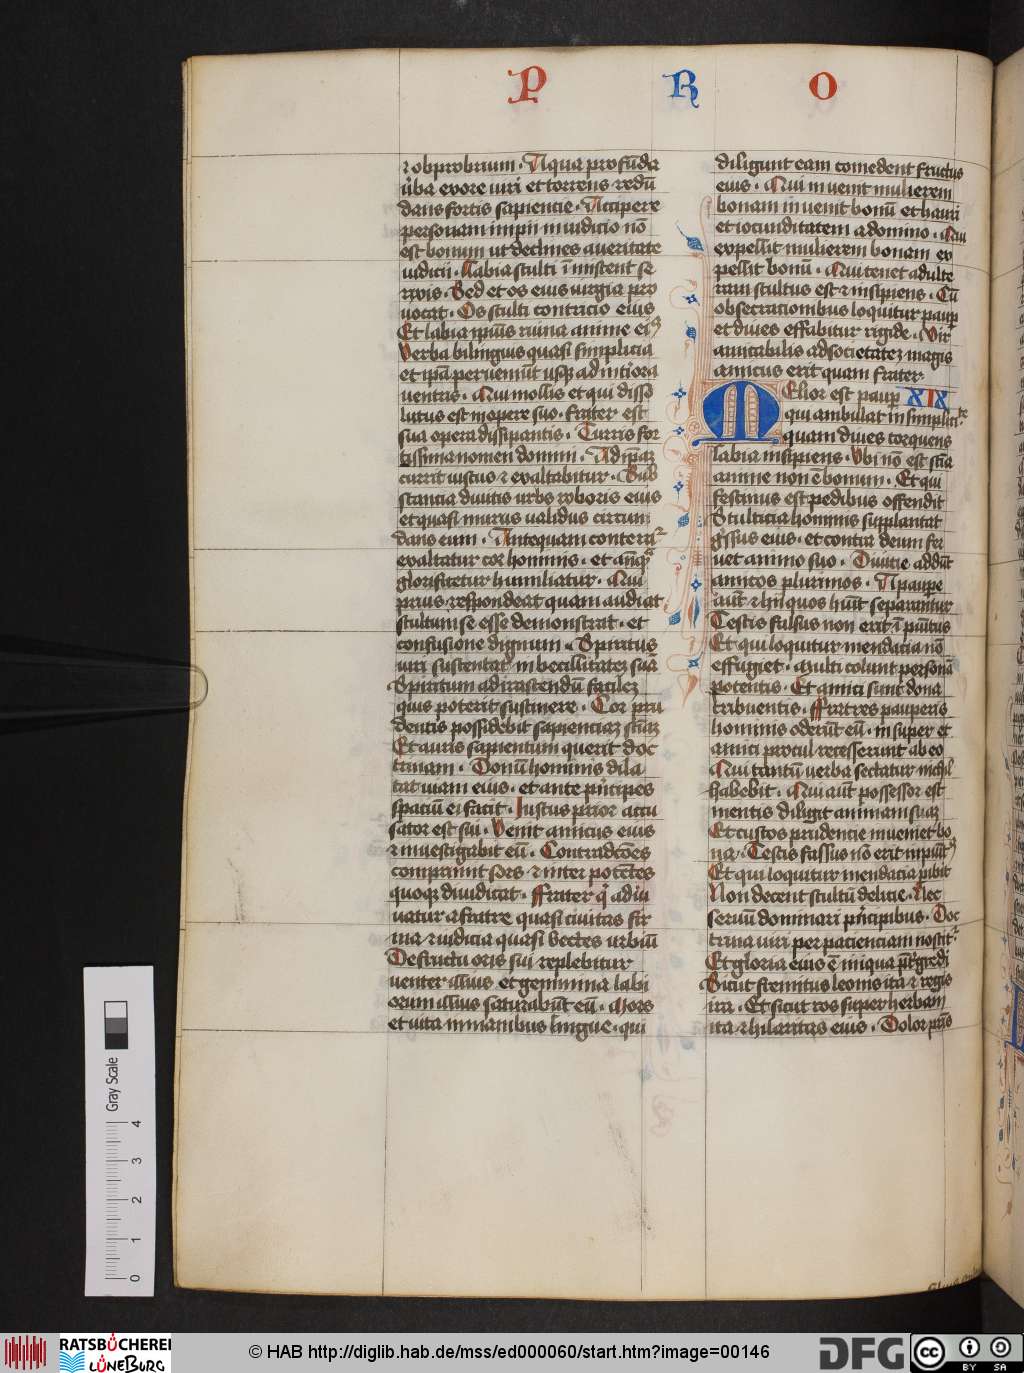 P R O
⁊ obprobrium . Aqua profūda
ṽba ex ore viri et torrens redū
dans fortis sapiencie . Accipere
personam impii in iudicio nō
est bonum ut declines a veritate
iudicii . Labia stulti ī miscent se
rixis . Sed et os eius iurgia pro
vocat . Os stulti contricio eius
Et labia ipiūs ruina anime eiꝰ
Verba bilinguis quasi simplicia
et ipā perveniūt usqꝫ ad intiora
ventris . Qui mollis et qui disso
lutus est in opere suo . frater est
sua opera dissipantis . Turris for
tissima nomen domini . Ad ipāꝫ
currit iustus ⁊ exaltabitur . Sub
stancia divitis urbs roboris eius
et quasi murus validus circum
dans eum . Antequam conterat͛
exaltatur cor hominis . et anͣqꝫ
glorificetur humiliatur . Qui
prius respondeat quam audiat
stultum se esse demonstrat . et
confusione dignum . Spiritus
viri sustentat inbecillitateꝫ suā
Spiritum ad irascendū facileꝫ
quis poterit sustinere . Cor pru
dentis possidebit sapienciaꝫ
Et auris sapientum querit doc
trinam . Donū hominis dila
tat viam eius . et ante pͥncipes
spaciū ei facit . Iustus prior accu
sator est sui . Venit amicus eius
⁊ investigabit eū . Contradcōes
comprimit sors ⁊ inter potētes
quoqꝫ diiudicat . Frater qͥ adiu
vatur a fratre quasi civitas fir
ma ⁊ iudicia quasi vectes urbiū
De fructu oris sui replebitur
venter illius et gemmina labi
orum illius saturabūt eū . Mors
et vita in manibus lingue . qui
diligunt eam comedent fructus
eius . Qui invenit mulierem
bonam invenit bonū et hauri
et iocunditatem a domino . Qui
expellit mulierem bonam ex
pellit bonū . Qui tenet adulte
ram stultus est ⁊ insipiens . Cū
obsecracionibus loquitur paup
et dives effabitur rigide . Vir
amicabilis ad societateꝫ magis
amicus erit quam frater
Melior est paup XIX
qui ambulat in simpliciͭᵉ
quam dives torquens
labia insipiens . Ubi nō est scīa
anime non ē bonum . Et qui
festinus est pedibus offendit
Stulticia hominis supplantat
gͬssus eius . et contra deum fer
vet animo suo . Divicie addūt
amicos plurimos . A paupe
aūt ⁊ hii quos hūt separantur
Testis falsus non erit ī pūitus
Et qui loquitur mendacia nō
effugiet . Multi colunt personā
potentis . Et amici sunt dona
tribuentis . Fratres pauperis
hominis oderūt eū . insuper et
amici procul recesserunt ab eo
Qui tantū verba sectatur nichil
habebit . Qui aūt possessor est
mentis diligit animam suaꝫ
Et custos prudentie inveniet bo
na . Testis falsus nō erit inpūitꝰ
Et qui loquitur mendacia pibit
Non decent stultū delicie . Nec
servū dominari pͥncipibus . Doc
trina viri per pacienciam noscit͛
Et gloria eius ē iniqua pͥtͬgredi
Sicut fremitus leonis ita ⁊ regis
ira . Et sicut ros super herbam
ita ⁊ hilaritas eius . Dolor pr̄is
Gray Scale
0 1 2 3 4
RATSBÜCHEREI
LÜNEBURG
© HAB http://diglib.hab.de/mss/ed000060/start.htm?image=00146
DFG
cc
BY SA